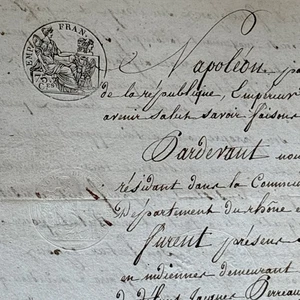 EMP. FRAN.
Napoléon pa
de la république, Empereur
avenir salut savoir faisons
Pardevant nou
résidant dans la Commu
Département du rhône e
furent présens
en indiennes demeurant
Jacques Perreau